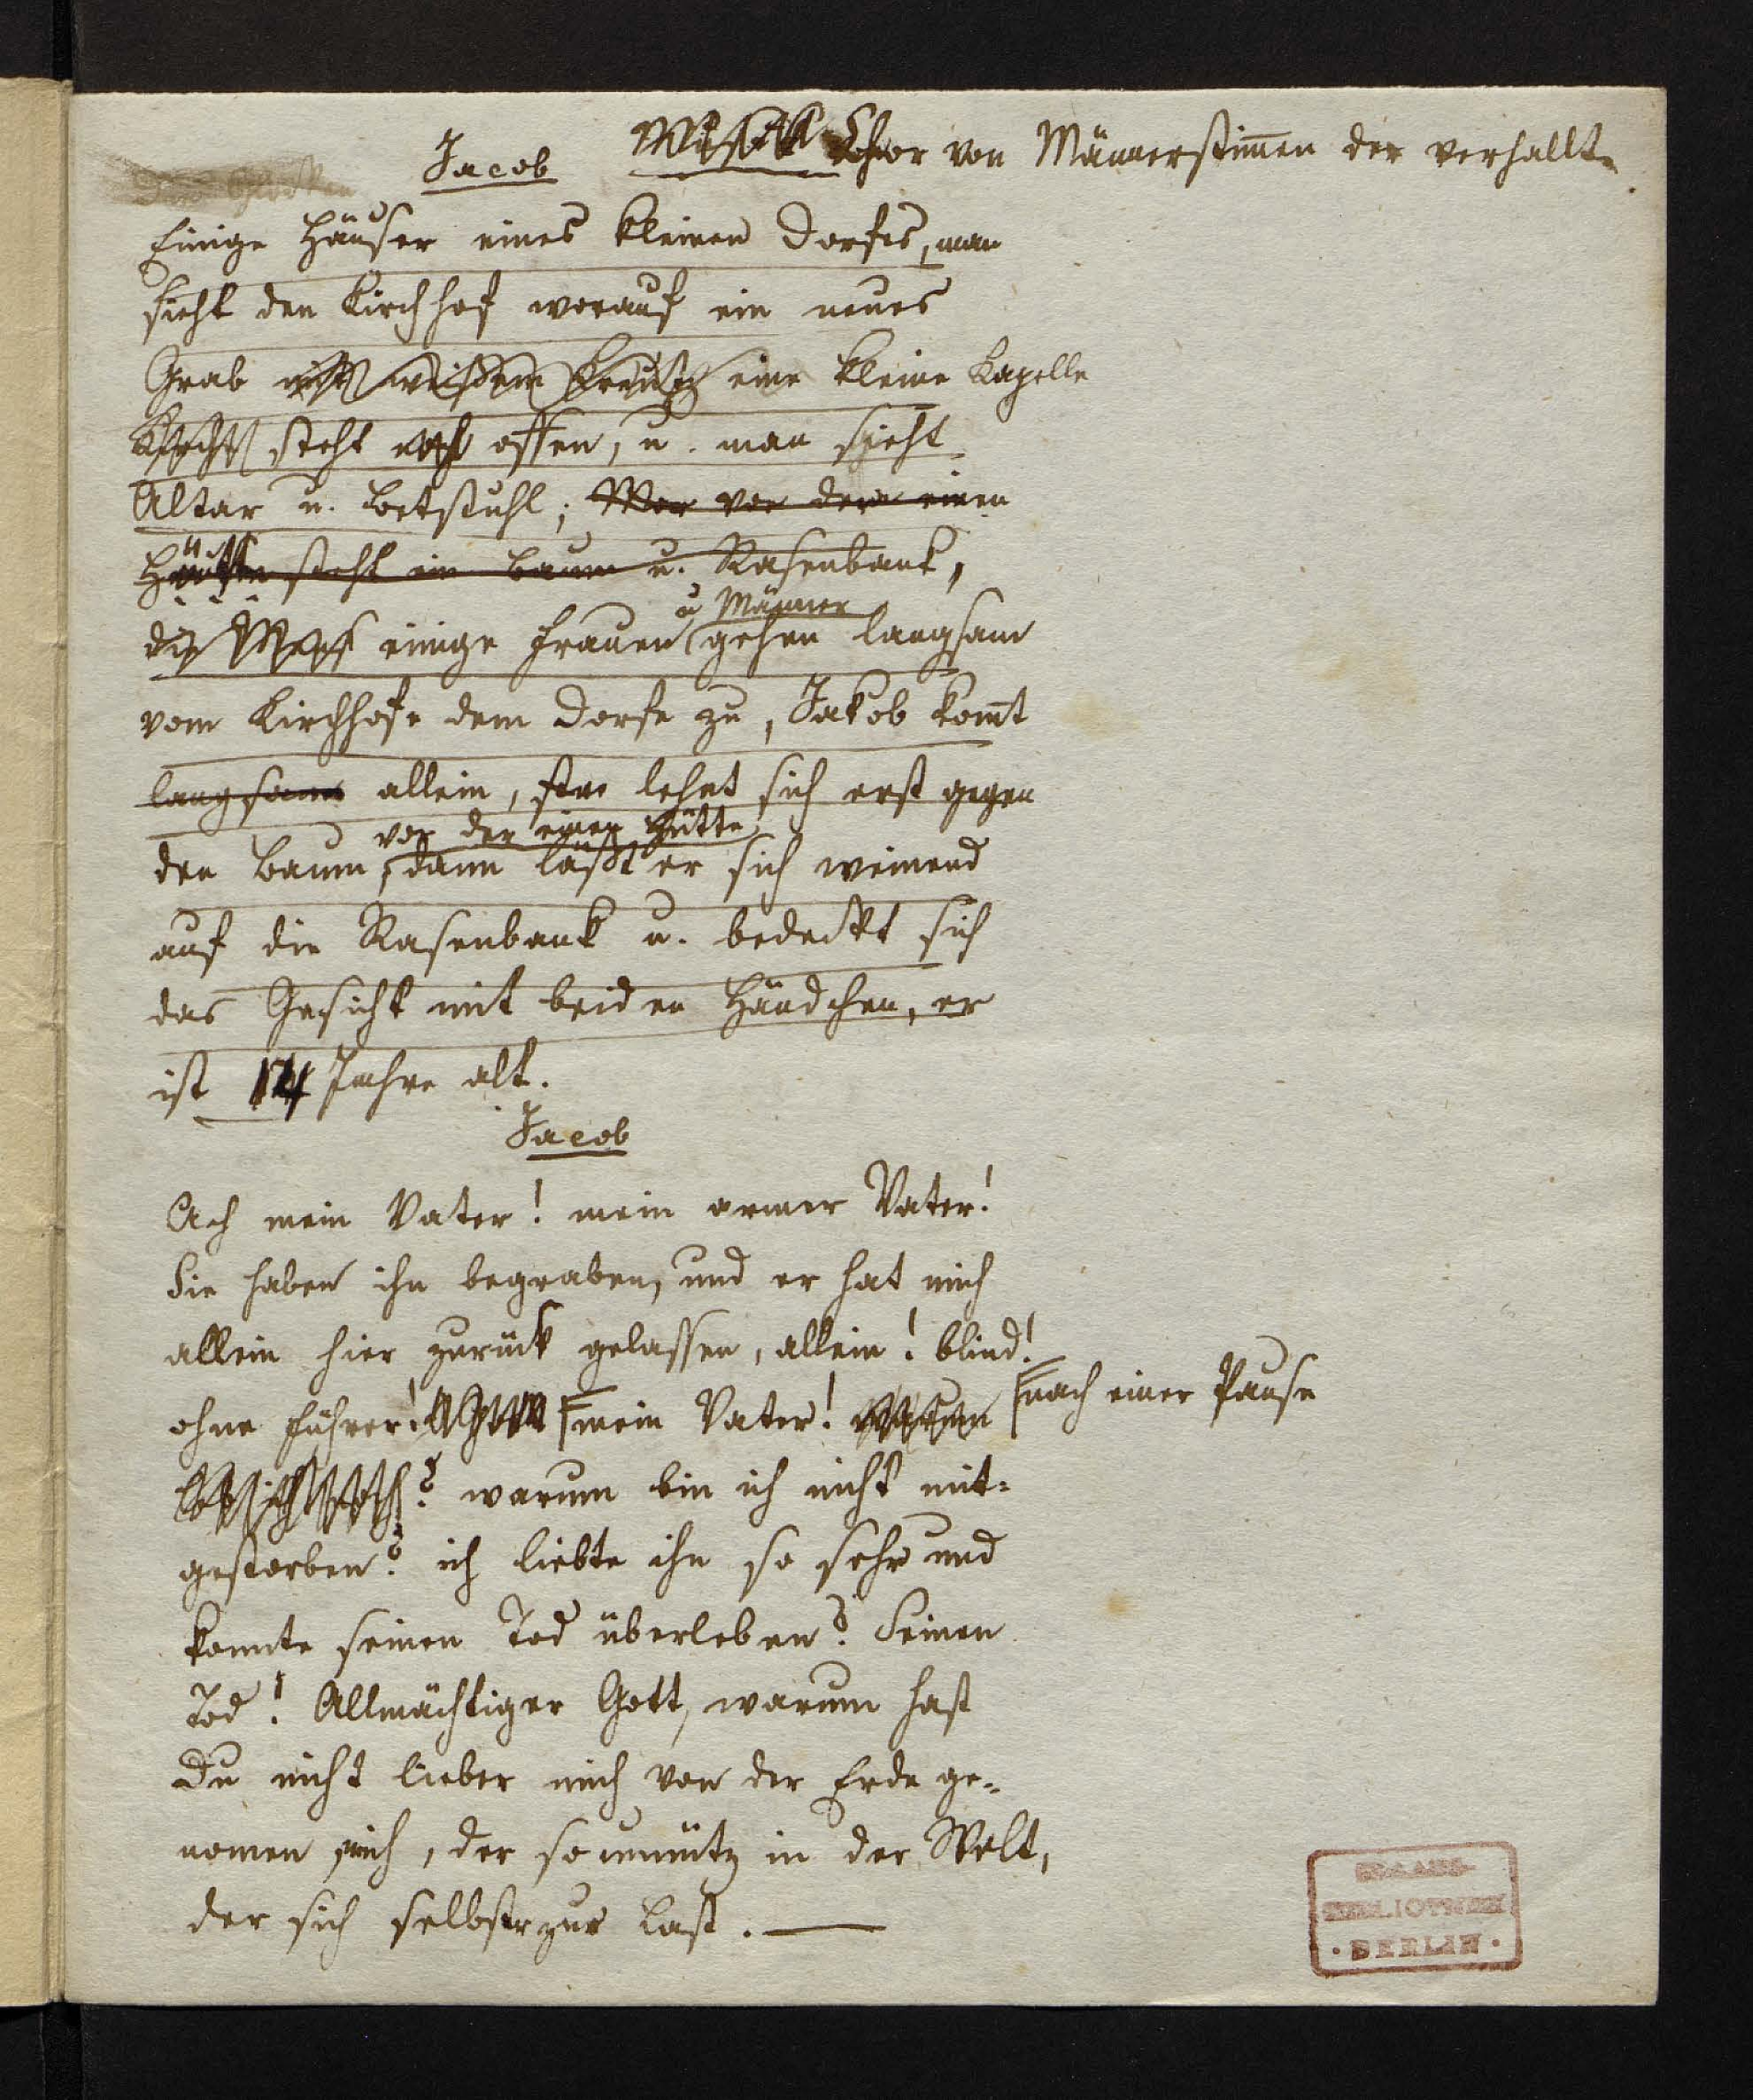 Jacob Musik Chor von Männerstim̄en der verhallt.
Einige Häuser eines kleinen Dorfes, man
sieht den Kirchhof worauf ein neues
Grab mit weißem Kreutz eine kleine Kapelle
rechts steht noch offen, u. man sieht
Altar u. Betstuhl; vor der einen
Hütte steht ein Baum u. Rasenbank,
u Männer
einige Frauen gehen langsam
vom Kirchhofe dem Dorfe zu, Jakob kom̄t
langsam allein, er lehnt sich erst gegen
vor der einen Hütte
den Baum, dann läßt er sich weinend
auf die Rasenbank u. bedeckt sich
das Gesicht mit beiden Händchen, er
ist 14 Jahre alt.
Jacob
Ach mein Vater! mein armer Vater!
Sie haben ihn begraben, und er hat mich
allein hier zurück gelassen, allein! blind!
ohne Führer! mein Vater! warum nach einer Pause
leb ich noch? warum bin ich nicht mit=
gestorben? ich liebte ihn so sehr und
konnte seinen Tod überleben? Seinen
Tod! Allmächtiger Gott, warum hast
Du nicht lieber mich von der Erde ge=
nomen mich, der so unnütz in der Welt,
der sich selbst zur Last. —
STAATS-
BIBLIOTHEK
· BERLIN ·